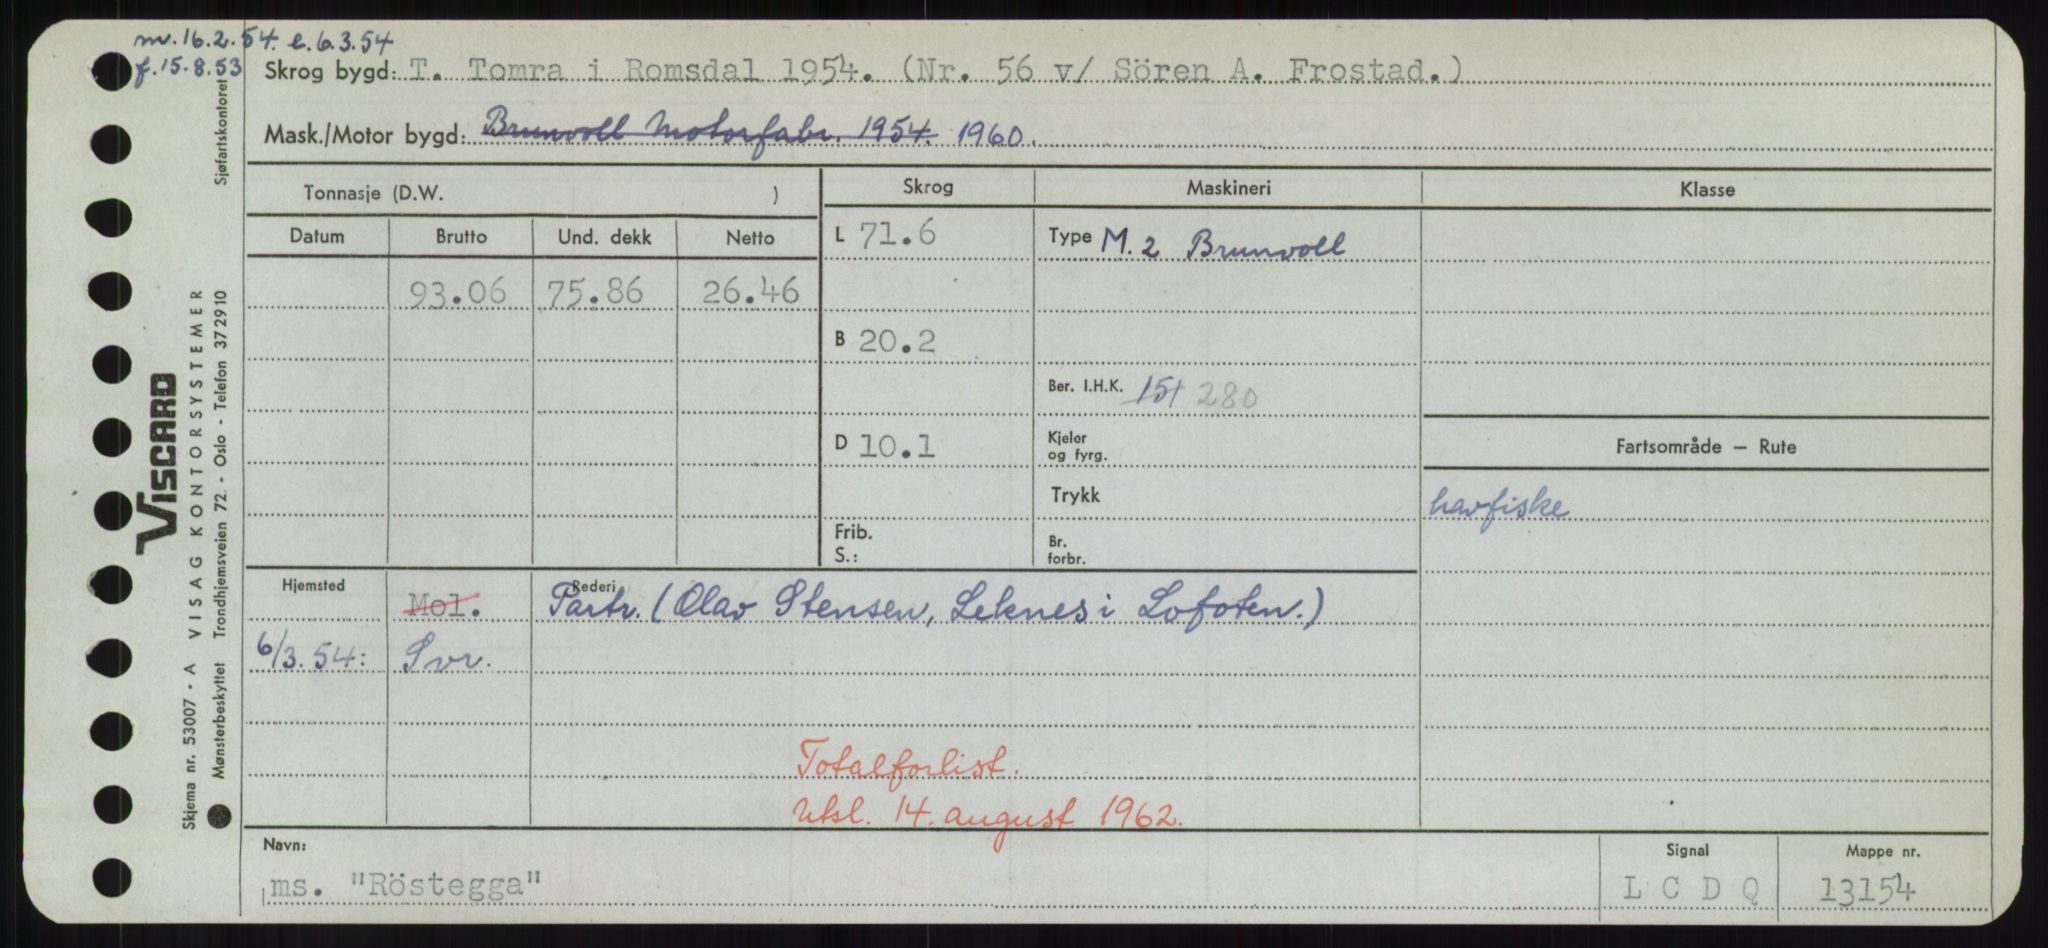 m. 16.2.54. e. 6.3.54
f. 15.8.53
Skrog bygd: T. Tomra i Romsdal 1954. (Nr. 56 v/ Sören A. Frostad.)
Mask./Motor bygd: Brunvoll Motorfabr. 1954. 1960.
Tonnasje (D.W. )
Skrog
Maskineri
Klasse
Datum Brutto Und. dekk Netto
L 71.6
Type M. 2 Brunvoll
93.06 75.86 26.46
B 20.2
Ber. I.H.K. 151 280
D 10.1
Kjeler
og fyrg.
Fartsområde – Rute
Trykk
havfiske
Frib.
S.:
Br.
forbr.
Hjemsted Mol. Rederi
Partr. (Olav Stensen, Leknes i Lofoten.)
6/3.54: Svr.
Totalforlist.
Utsl. 14. august 1962.
Navn:
ms. "Röstegga"
Signal
L C D Q
Mappe nr.
13154
Sjøfartskontoret
VISCARD
VISAG KONTORSYSTEMER
Skjema nr. 53007 - A
Mønsterbeskyttet Trondhjemsveien 72. - Oslo - Telefon 372910